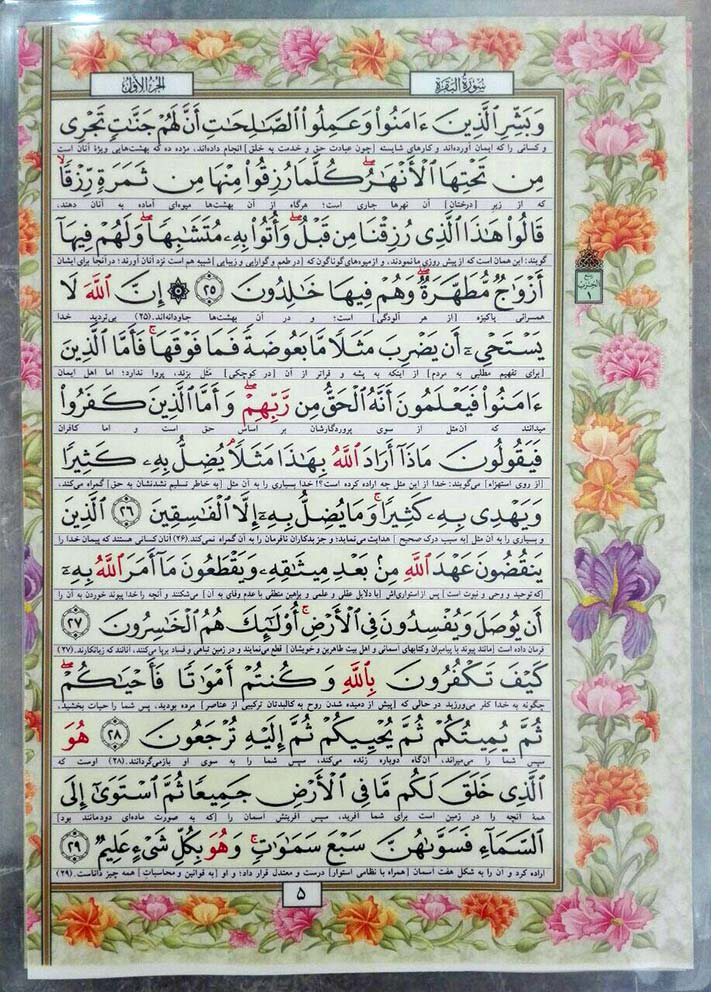 سُورَةُ البَقَرَة
الجُزءُ الأوَّل
وَبَشِّرِ ٱلَّذِينَ ءَامَنُوا۟ وَعَمِلُوا۟ ٱلصَّـٰلِحَـٰتِ أَنَّ لَهُمْ جَنَّـٰتٍ تَجْرِى
و کسانی را که ایمان آورده‌اند و کارهای شایسته [چون عبادت حق و خدمت به خلق] انجام داده‌اند، مژده ده که بهشت‌هایی ویژهٔ آنان است
مِن تَحْتِهَا ٱلْأَنْهَـٰرُ ۖ كُلَّمَا رُزِقُوا۟ مِنْهَا مِن ثَمَرَةٍ رِّزْقًا ۙ
که از زیرِ [درختان] آن نهرها جاری است؛ هرگاه از آن بهشت‌ها میوه‌ای آماده به آنان دهند،
قَالُوا۟ هَـٰذَا ٱلَّذِى رُزِقْنَا مِن قَبْلُ ۖ وَأُتُوا۟ بِهِۦ مُتَشَـٰبِهًا ۖ وَلَهُمْ فِيهَآ
گویند: این همان است که از پیش روزی ما نمودند، و از میوه‌های گوناگون که [در طعم و گوارایی و زیبایی] شبیه هم است نزد آنان آورند؛ در آنجا برای ایشان
أَزْوَٰجٌ مُّطَهَّرَةٌ ۖ وَهُمْ فِيهَا خَـٰلِدُونَ ﴿۲۵﴾ ۞ إِنَّ ٱللَّهَ لَا
ربع الحزب ۱
همسرانی پاکیزه [از هر آلودگی] است؛ و در آن بهشت‌ها جاودانه‌اند.(۲۵) بی‌تردید خدا
يَسْتَحْىِۦٓ أَن يَضْرِبَ مَثَلًا مَّا بَعُوضَةً فَمَا فَوْقَهَا ۚ فَأَمَّا ٱلَّذِينَ
[برای تفهیم مطلبی به مردم] از اینکه به پشه و فراتر از آن [در کوچکی] مثل بزند، پروا ندارد؛ اما اهل ایمان
ءَامَنُوا۟ فَيَعْلَمُونَ أَنَّهُ ٱلْحَقُّ مِن رَّبِّهِمْ ۖ وَأَمَّا ٱلَّذِينَ كَفَرُوا۟
میدانند که آن مثل از سوی پروردگارشان بر اساس حق است و اما کافران
فَيَقُولُونَ مَاذَآ أَرَادَ ٱللَّهُ بِهَـٰذَا مَثَلًا ۘ يُضِلُّ بِهِۦ كَثِيرًا
[از روی استهزاء] می‌گویند: خدا از این مثل چه اراده کرده است؟! خدا بسیاری را به آن مثل [به خاطر تسلیم نشدنشان به حق] گمراه می‌کند،
وَيَهْدِى بِهِۦ كَثِيرًا ۚ وَمَا يُضِلُّ بِهِۦٓ إِلَّا ٱلْفَـٰسِقِينَ ﴿۲۶﴾ ٱلَّذِينَ
و بسیاری را به آن مثل [به سبب درک صحیح] هدایت می‌نماید؛ و جز بدکاران نافرمان را به آن گمراه نمی‌کند.(۲۶) آنان کسانی هستند که پیمان خدا را
يَنقُضُونَ عَهْدَ ٱللَّهِ مِنۢ بَعْدِ مِيثَـٰقِهِۦ وَيَقْطَعُونَ مَآ أَمَرَ ٱللَّهُ بِهِۦٓ
[که توحید و وحی و نبوت است] پس از استواری‌اش [با دلایل عقلی و علمی و براهین منطقی با عدم وفای به آن] می‌شکنند و آنچه را خدا پیوند خوردن به آن را
أَن يُوصَلَ وَيُفْسِدُونَ فِى ٱلْأَرْضِ ۚ أُو۟لَـٰٓئِكَ هُمُ ٱلْخَـٰسِرُونَ ﴿۲۷﴾
فرمان داده است [مانند پیوند با پیامبران و کتابهای آسمانی و اهل بیت طاهرین و خویشان] قطع می‌نمایند و در زمین تباهی و فساد برپا می‌کنند، آنانند که زیانکارند.(۲۷)
كَيْفَ تَكْفُرُونَ بِٱللَّهِ وَكُنتُمْ أَمْوَٰتًا فَأَحْيَـٰكُمْ ۖ
چگونه به خدا کفر می‌ورزید در حالی که [پیش از دمیده شدن روح به کالبدتان ترکیبی از عناصر] مرده بودید، پس شما را حیات بخشید،
ثُمَّ يُمِيتُكُمْ ثُمَّ يُحْيِيكُمْ ثُمَّ إِلَيْهِ تُرْجَعُونَ ﴿۲۸﴾ هُوَ
سپس شما را می‌میراند، آن‌گاه دوباره زنده می‌کند، سپس شما را به سوی او بازمی‌گردانند.(۲۸) اوست که
ٱلَّذِى خَلَقَ لَكُم مَّا فِى ٱلْأَرْضِ جَمِيعًا ثُمَّ ٱسْتَوَىٰٓ إِلَى
همهٔ آنچه را در زمین است برای شما آفرید، سپس آفرینش آسمان را [که به صورت ماده‌ای دودمانند بود]
ٱلسَّمَآءِ فَسَوَّىٰهُنَّ سَبْعَ سَمَـٰوَٰتٍ ۚ وَهُوَ بِكُلِّ شَىْءٍ عَلِيمٌ ﴿۲۹﴾
اراده کرد و آن را به شکل هفت آسمان [همراه با نظامی استوار] درست و معتدل قرار داد؛ و او [به قوانین و محاسباتِ] همه چیز داناست.(۲۹)
۵